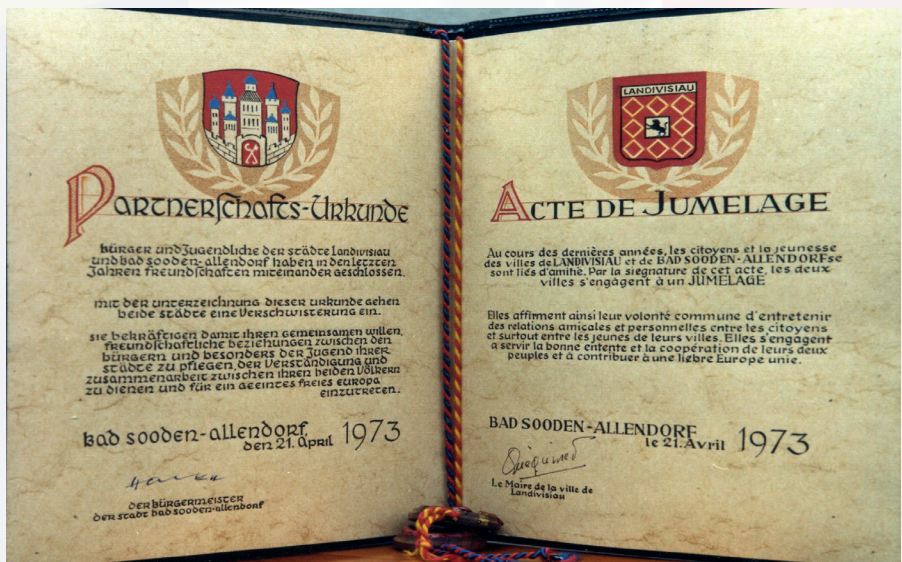 Partnerschafts-Urkunde
Bürger und Jugendliche der Städte Landivisiau
und Bad Sooden-Allendorf haben in den letzten
Jahren Freundschaften miteinander geschlossen.
Mit der Unterzeichnung dieser Urkunde gehen
beide Städte eine Verschwisterung ein.
Sie bekräftigen damit ihren gemeinsamen Willen,
freundschaftliche Beziehungen zwischen den
Bürgern und besonders der Jugend ihrer
Städte zu pflegen, der Verständigung und
Zusammenarbeit zwischen ihren beiden Völkern
zu dienen und für ein geeintes freies Europa
einzutreten.
Bad Sooden-Allendorf,
den 21. April 1973
Der Bürgermeister
der Stadt Bad Sooden-Allendorf
LANDIVISIAU
ACTE DE JUMELAGE
Au cours des dernières années, les citoyens et la jeunesse
des villes de LANDIVISIAU et de BAD SOODEN-ALLENDORF se
sont liés d'amitié. Par la siegnature de cet acte, les deux
villes s'engagent à un JUMELAGE
Elles affirment ainsi leur volonté commune d'entretenir
des relations amicales et personnelles entre les citoyens
et surtout entre les jeunes de leurs villes. Elles s'engagent
a servir la bonne entente et la coopération de leurs deux
peuples et à contribuer à une liebre Europe unie.
BAD SOODEN-ALLENDORF
le 21. Avril 1973
Le Maire de la ville de
Landivisiau